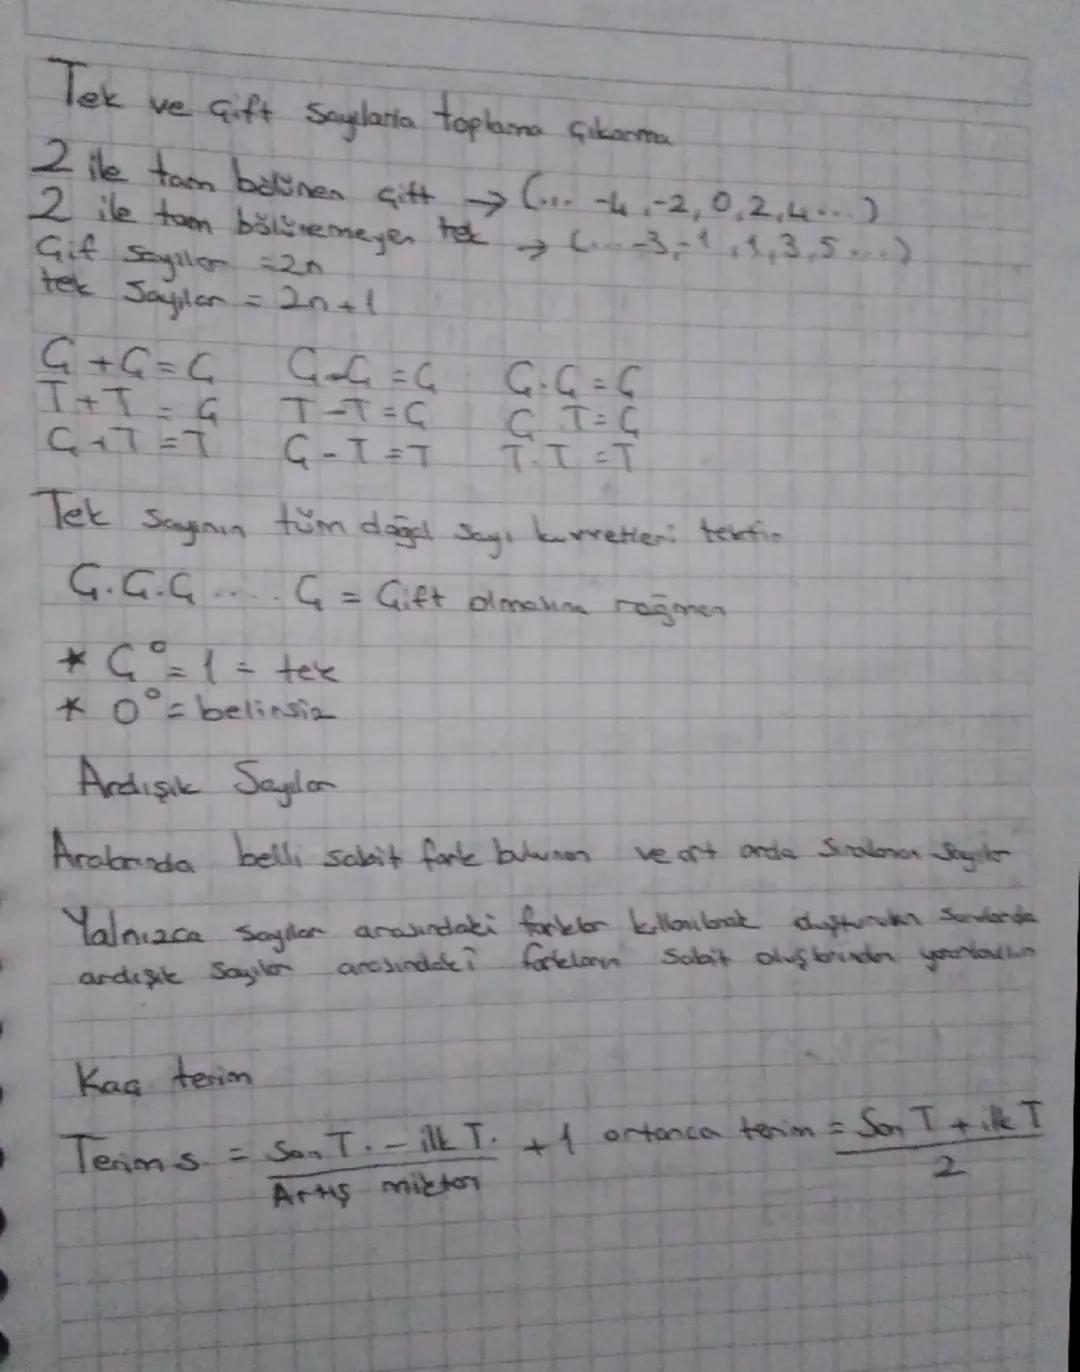 Tek ve Çift Sayılarla toplama Çıkarma
2 ile tam bölünen çift → (... -4, -2, 0, 2, 4 ...)
2 ile tam bölünemeyen tek → (... -3, -1, 1, 3, 5 ...)
Çif Sayılar = 2n
tek Sayılar = 2n+1
Ç+Ç=Ç Ç-Ç=Ç Ç.Ç=Ç
T+T=Ç T-T=Ç Ç T=Ç
Ç+T=T Ç-T=T T.T=T
Tek Sayının tüm doğal Sayı kuvvetleri tektir
Ç.Ç.Ç .... Ç = Çift olmasına rağmen
* Ç⁰=1 = tek
* 0⁰= belirsiz
Ardışık Sayılar
Aralarında belli sabit fark bulunan ve art arda Sıralanan Sayılar
Yalnızca sayılar arasındaki farklar kullanılarak oluşturulan Sorularda
ardışık Sayılar arasındaki farkların Sabit oluşlarından yararlanılır
Kaç terim
Terim s. = Son T. - ilk T. / Artış miktarı + 1 ortanca terim = Son T + ilk T / 2